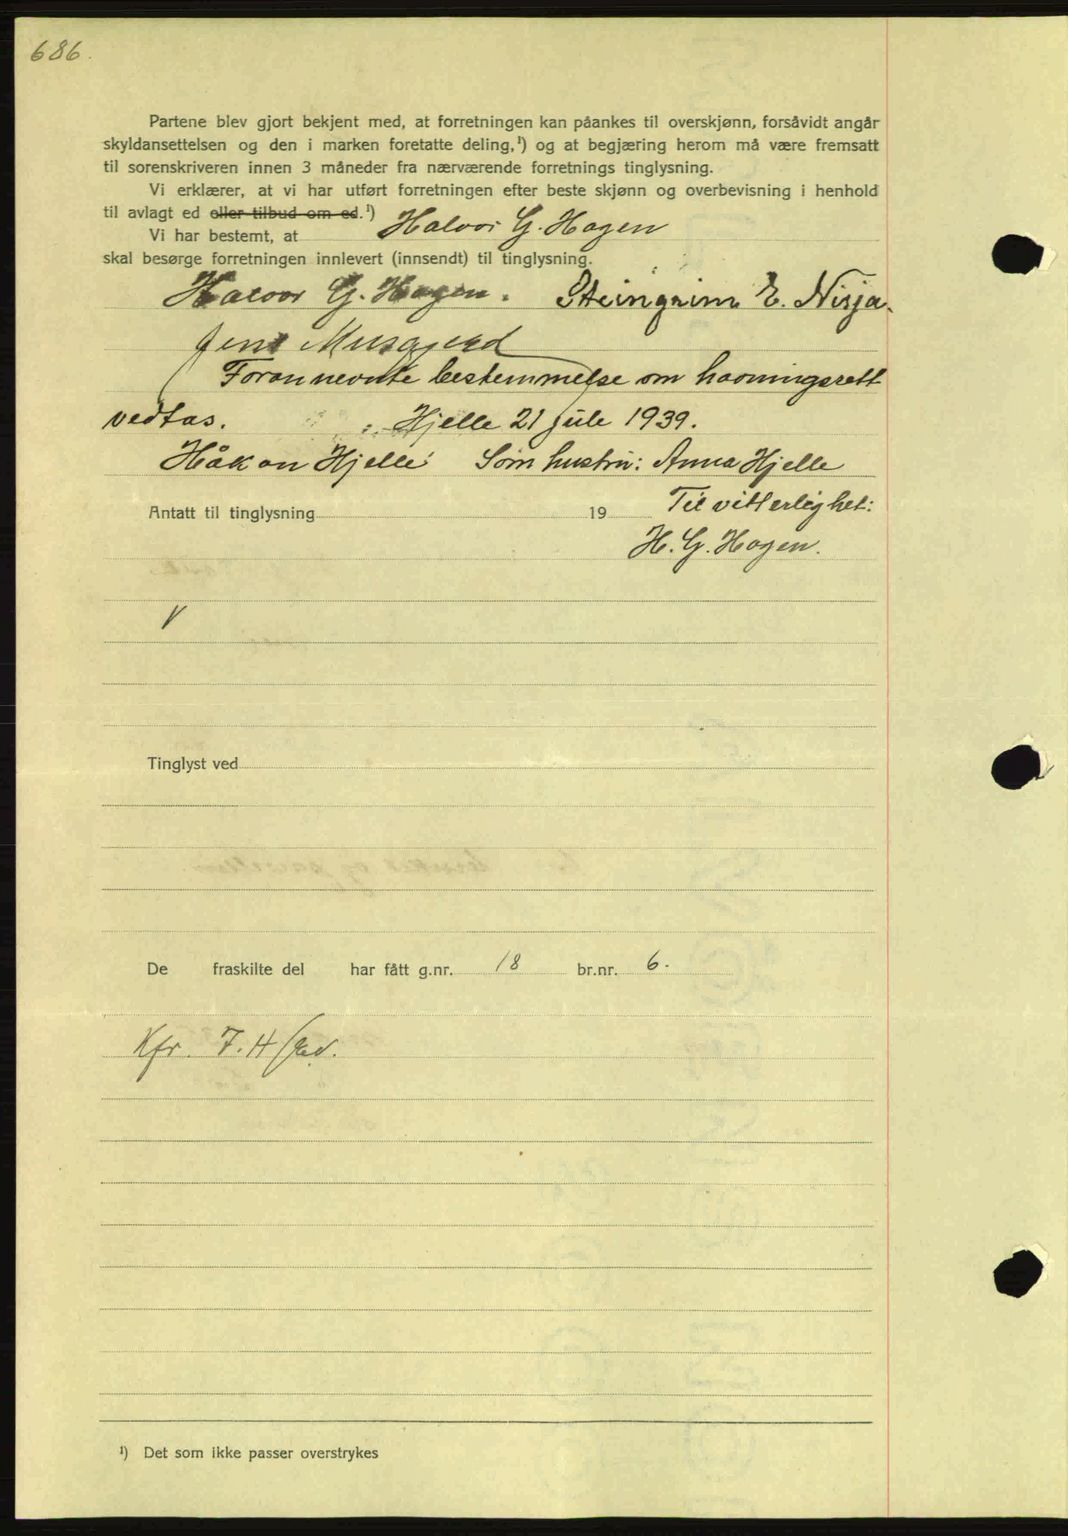 686.
Partene blev gjort bekjent med, at forretningen kan påankes til overskjønn, forsåvidt angår
skyldansettelsen og den i marken foretatte deling,¹) og at begjæring herom må være fremsatt
til sorenskriveren innen 3 måneder fra nærværende forretnings tinglysning.
Vi erklærer, at vi har utført forretningen efter beste skjønn og overbevisning i henhold
til avlagt ed eller tilbud om ed.¹)
Vi har bestemt, at Halvor G. Hagen
skal besørge forretningen innlevert (innsendt) til tinglysning.
Halvor G. Hagen. Steingrim E. Nisja.
Jens
Forannevnte bestemmelse om havningsrett
vedtas. Hjelle 21 jule 1939.
Håkon Hjelle Som hustru: Anna Hjelle
Antatt til tinglysning 19 Til vitterlighet:
H. G. Hagen.
Tinglyst ved
De fraskilte del har fått g.nr. 18 br.nr. 6.
Kfr. F. H.
¹) Det som ikke passer overstrykes